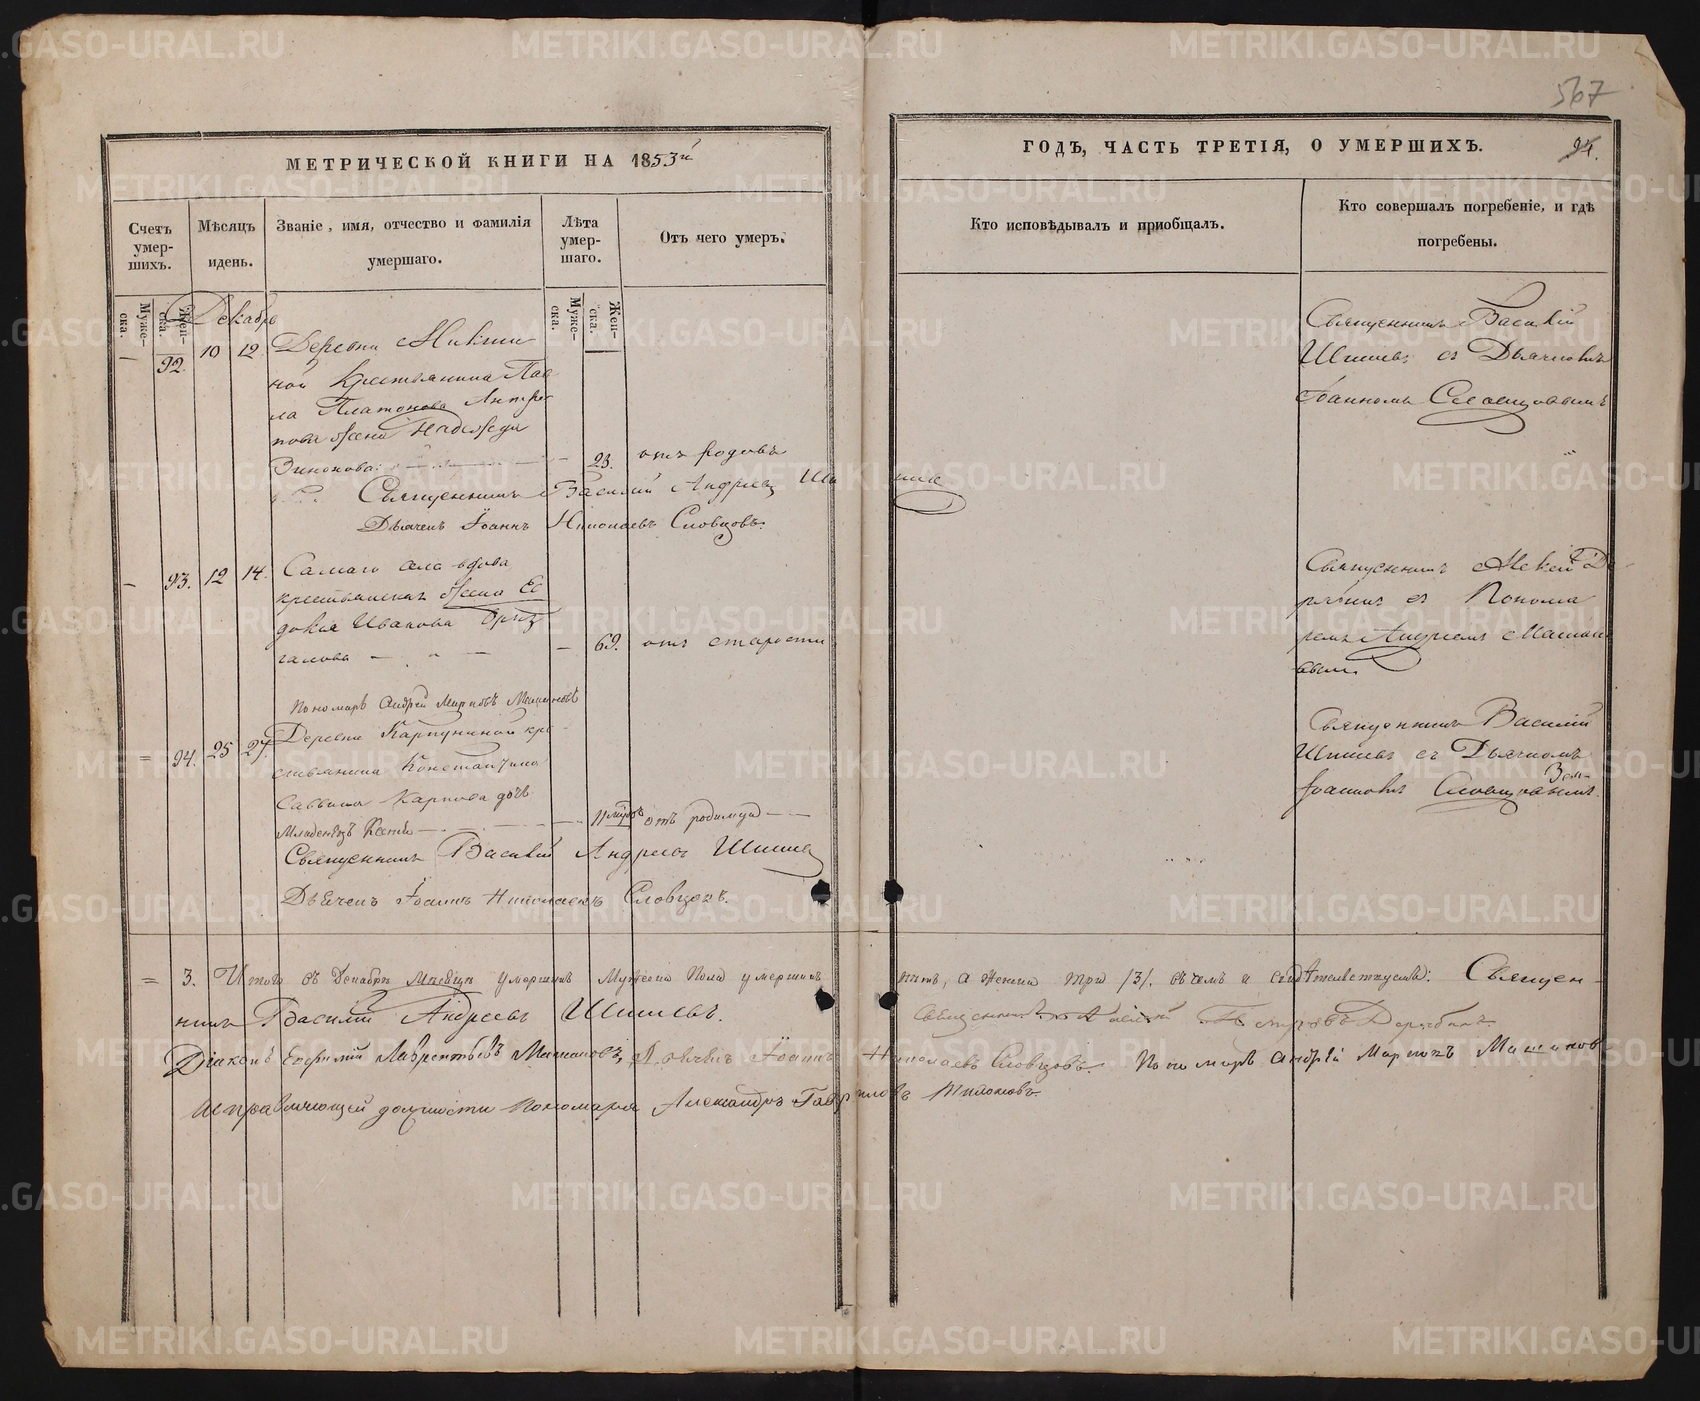 567
МЕТРИЧЕСКОЙ КНИГИ НА 1853й
ГОДЪ, ЧАСТЬ ТРЕТІЯ, О УМЕРШИХЪ.
94.
Счетъ умер-
шихъ.
Мѣсяцъ
идень.
Званіе, имя, отчество и фамилія
умершаго.
Лѣта
умер-
шаго.
Отъ чего умеръ.
Кто исповѣдывалъ и пріобщалъ.
Кто совершалъ погребеніе, и гдѣ
погребены.
Муже-
ска.
Жен-
ска.
Муже-
ска.
Жен-
ска.
Декабрь
92. 10 12 Деревни
ной Крестьянина Пав
ла Платонова Антро
пова жена Надежда
23. отъ родовъ
Священникъ Василий Андреевъ
Дьячекъ Іоаннъ Николаевъ Словцовъ.
Священникъ Василій
Шишевъ съ Дьячкомъ
Іоанномъ Словцовымъ
93. 12 14. Самаго села вдова
крестьянская жена Ев
докія Иванова
галова
69. отъ старости
Священникъ Алексій
съ Понома
ремъ Андреемъ Машан
овым
Пономарь Андрей Марковъ Машановъ
94. 25 27. Деревни Карпушиной кре
стьянина Константина
Саввина Карпова дочь
Младенецъ
отъ родимца
Священникъ Василій Андреевъ Шишев
Дьячекъ Іоаннъ Николаевъ Словцовъ.
Священникъ Василій
Шишевъ съ Дьячкомъ
Іоанномъ Словцовымъ.
3. Итого въ Декабрѣ Мѣсяцѣ умершихъ Мужеска Пола умершихъ нѣтъ, а Женска три /3/. въ чемъ и свидѣтельствуемъ: Священ-
никъ Василій Андреевъ Шишевъ. Священникъ Алексій Петровъ
Діаконъ Евфимій Лаврентьевъ Машановъ, Дьячекъ Іоаннъ Николаевъ Словцовъ. Пономарь Андрей Марковъ Машанов
Исправляющей должность Пономаря Александръ Гавриловъ
METRIKI.GASO-URAL.RU